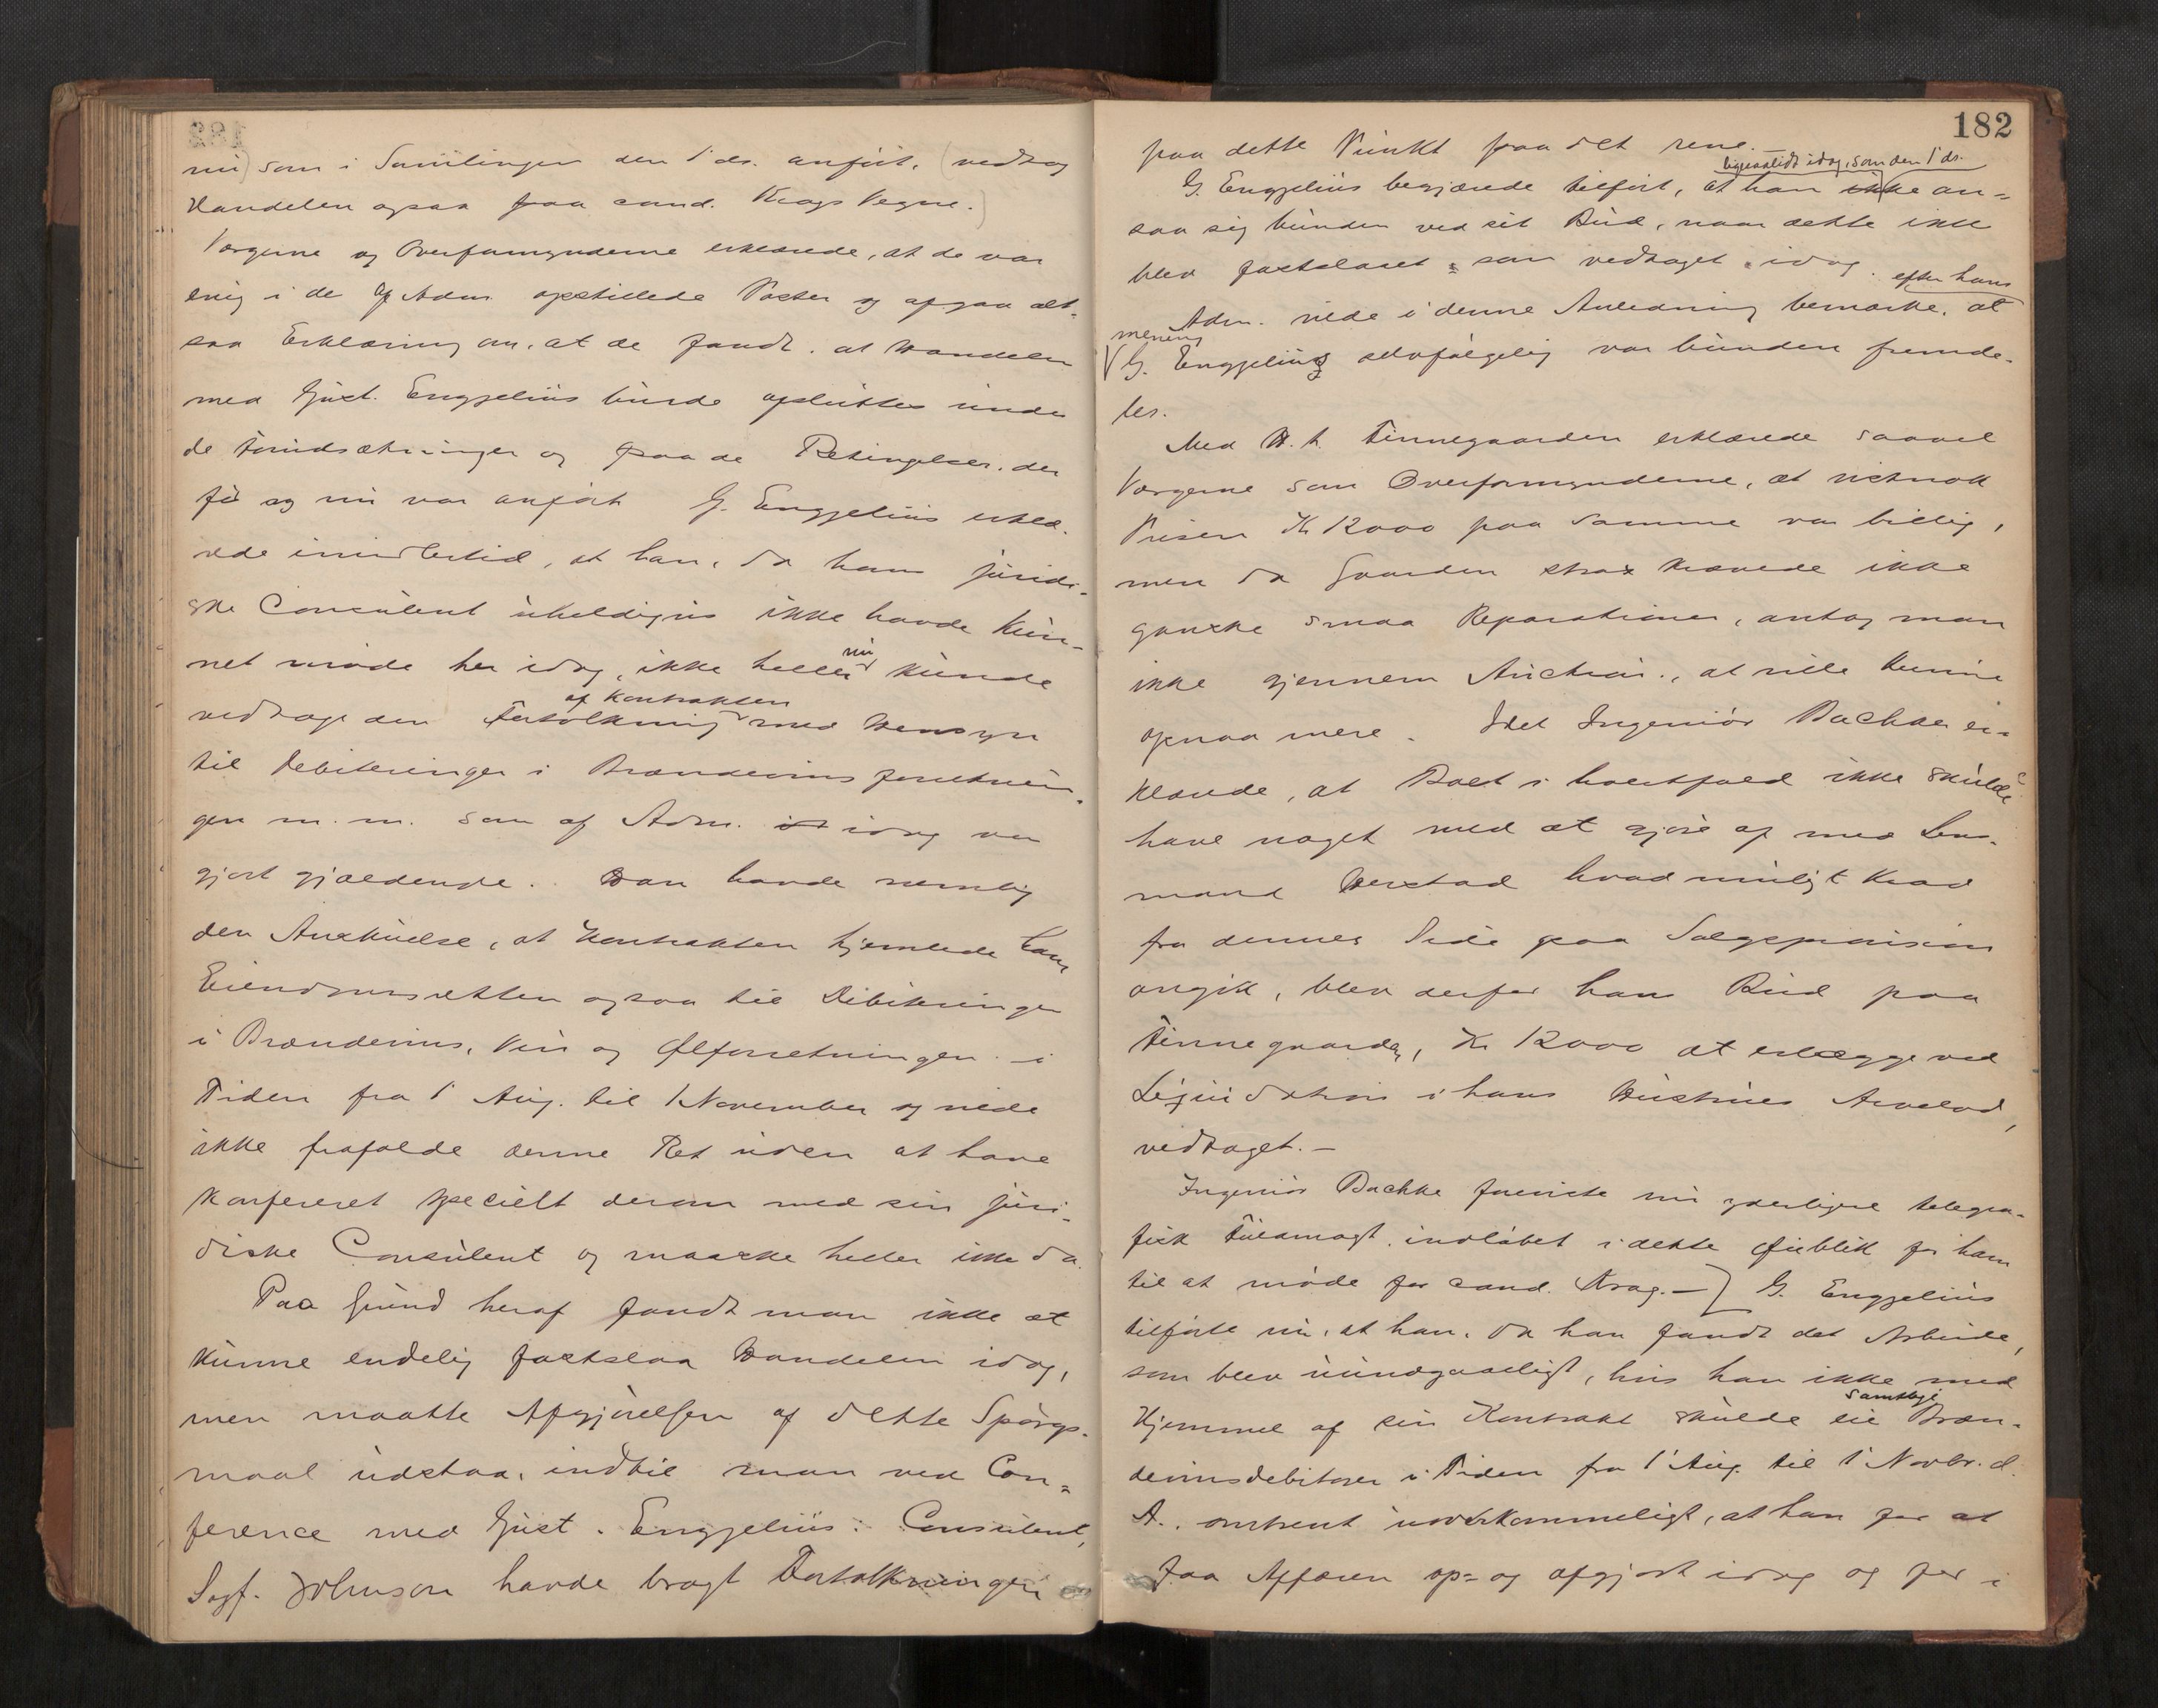 nu) som i Samlingen den 1' ds. anført. (vedtog
Handelen ogsaa paa cand. Krags Vegne.)
Værgerne og Overformynderne erklærede, at de var
enig i de af Adm. opstillede Poster og afgav alt-
saa Erklæring om, at de fandt, at Handelen
med Gust. Engzelius burde afsluttes under
de Forudsætninger og paa de Betingelser, der
før og nu var anført G. Engzelius erklæ-
rede imidlertid, at han, da hans juridi-
ske Consulent uheldigvis ikke havde kun-
net møde her idag, ikke heller nu kunde
vedtage den Fortolkning af Kontrakten med Hensyn
til Debiteringer i Brændevinsforretnin-
gen m. m. som af Adm. idag var
gjort gjældende. Han havde nemlig
den Anskuelse, at Kontrakten hjemlede ham
Eiendomsretten ogsaa til Debiteringer
i Brændevins, Vin og Ølforretningen i
Tiden fra 1' Aug. til 1 November og vilde
ikke frafalde denne Ret uden at have
konfereret specielt derom med sin juri-
diske Consulent og maaske heller ikke da.
Paa Grund heraf fandt man ikke at
kunne endelig fastslaa Handelen idag,
men maatte Afgjørelsen af dette Spørgs-
maal udstaa, indtil man ved Con-
ference med Gust. Engzelius' Consulent,
Sagf. Johnson havde bragt Fortolkningen
182
paa dette Punkt paa det rene. -
G. Engzelius begjærede tilført, at han ligesalidt idag, som den 1' ds. an-
saa sig bunden ved sit Bud, naar dette ikke
blev fastslaaet som vedtaget idag.
Adm. vilde i denne Anledning bemærke, at efter hans
mening
G. Engzelius selvfølgelig var bunden fremde-
les.
Med H. t. Finnegaarden erklærede saavel
Værgerne som Overformynderne, at vistnok
Prisen Kr 12000 paa samme var billig,
men da Gaarden strax krævede ikke
ganske smaa Reparationer, antog man
ikke gjennem Auction, at ville kunne
opnaa mere. Idet Ingeniør Bachke er-
klærede, at Boet i hvertfald ikke skulde
have noget med at gjøre af med Lens-
mand Herstad hvad muligt Krav
fra dennes Side paa Salgsprovision
angik, blev derfor hans Bud paa
Finnegaarden, Kr 12000 at erlægge ved
Liquidation i hans Hustrues Arvelod,
vedtaget. -
Ingeniør Bachke foreviste nu yderligere telegra-
fisk Fuldmagt, indløbet i dette Øieblik for ham
til at møde for cand. Krag. -] G. Engzelius
tilførte nu, at han, da han fandt det Arbeide,
som blev uundgaaeligt, hvis han ikke med
Hjemmel af sin Kontrakt skulde eie samtlige Bræn-
devinsdebitorer i Tiden fra 1' Aug. til 1' Novbr. d.
A. omtrent uoverkommeligt, at han for at
faa Affæren op- og afgjort idag og for i